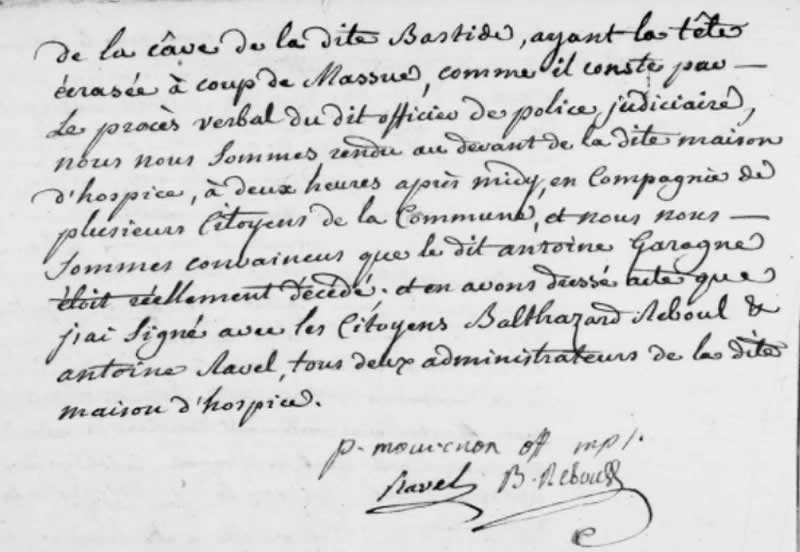 de la câve de la dite Bastide, ayant la tête
écrasée à coup de Massue, comme il conste par —
Le procès verbal du dit officier de police judiciaire,
nous nous Sommes rendu au devant de la dite maison
d'hospice, à deux heures après midy, en Compagnie de
plusieurs Citoyens de la Commune, et nous nous —
Sommes convaincus que le dit antoine Garagne
étoit réellement décédé. et en avons dressé acte que
j'ai Signé avec les Citoyens Balthazard Reboul &
antoine Ravel, tous deux administrateurs de la dite
maison d'hospice.
p. mourenon off mpl.
Ravel B. Reboul